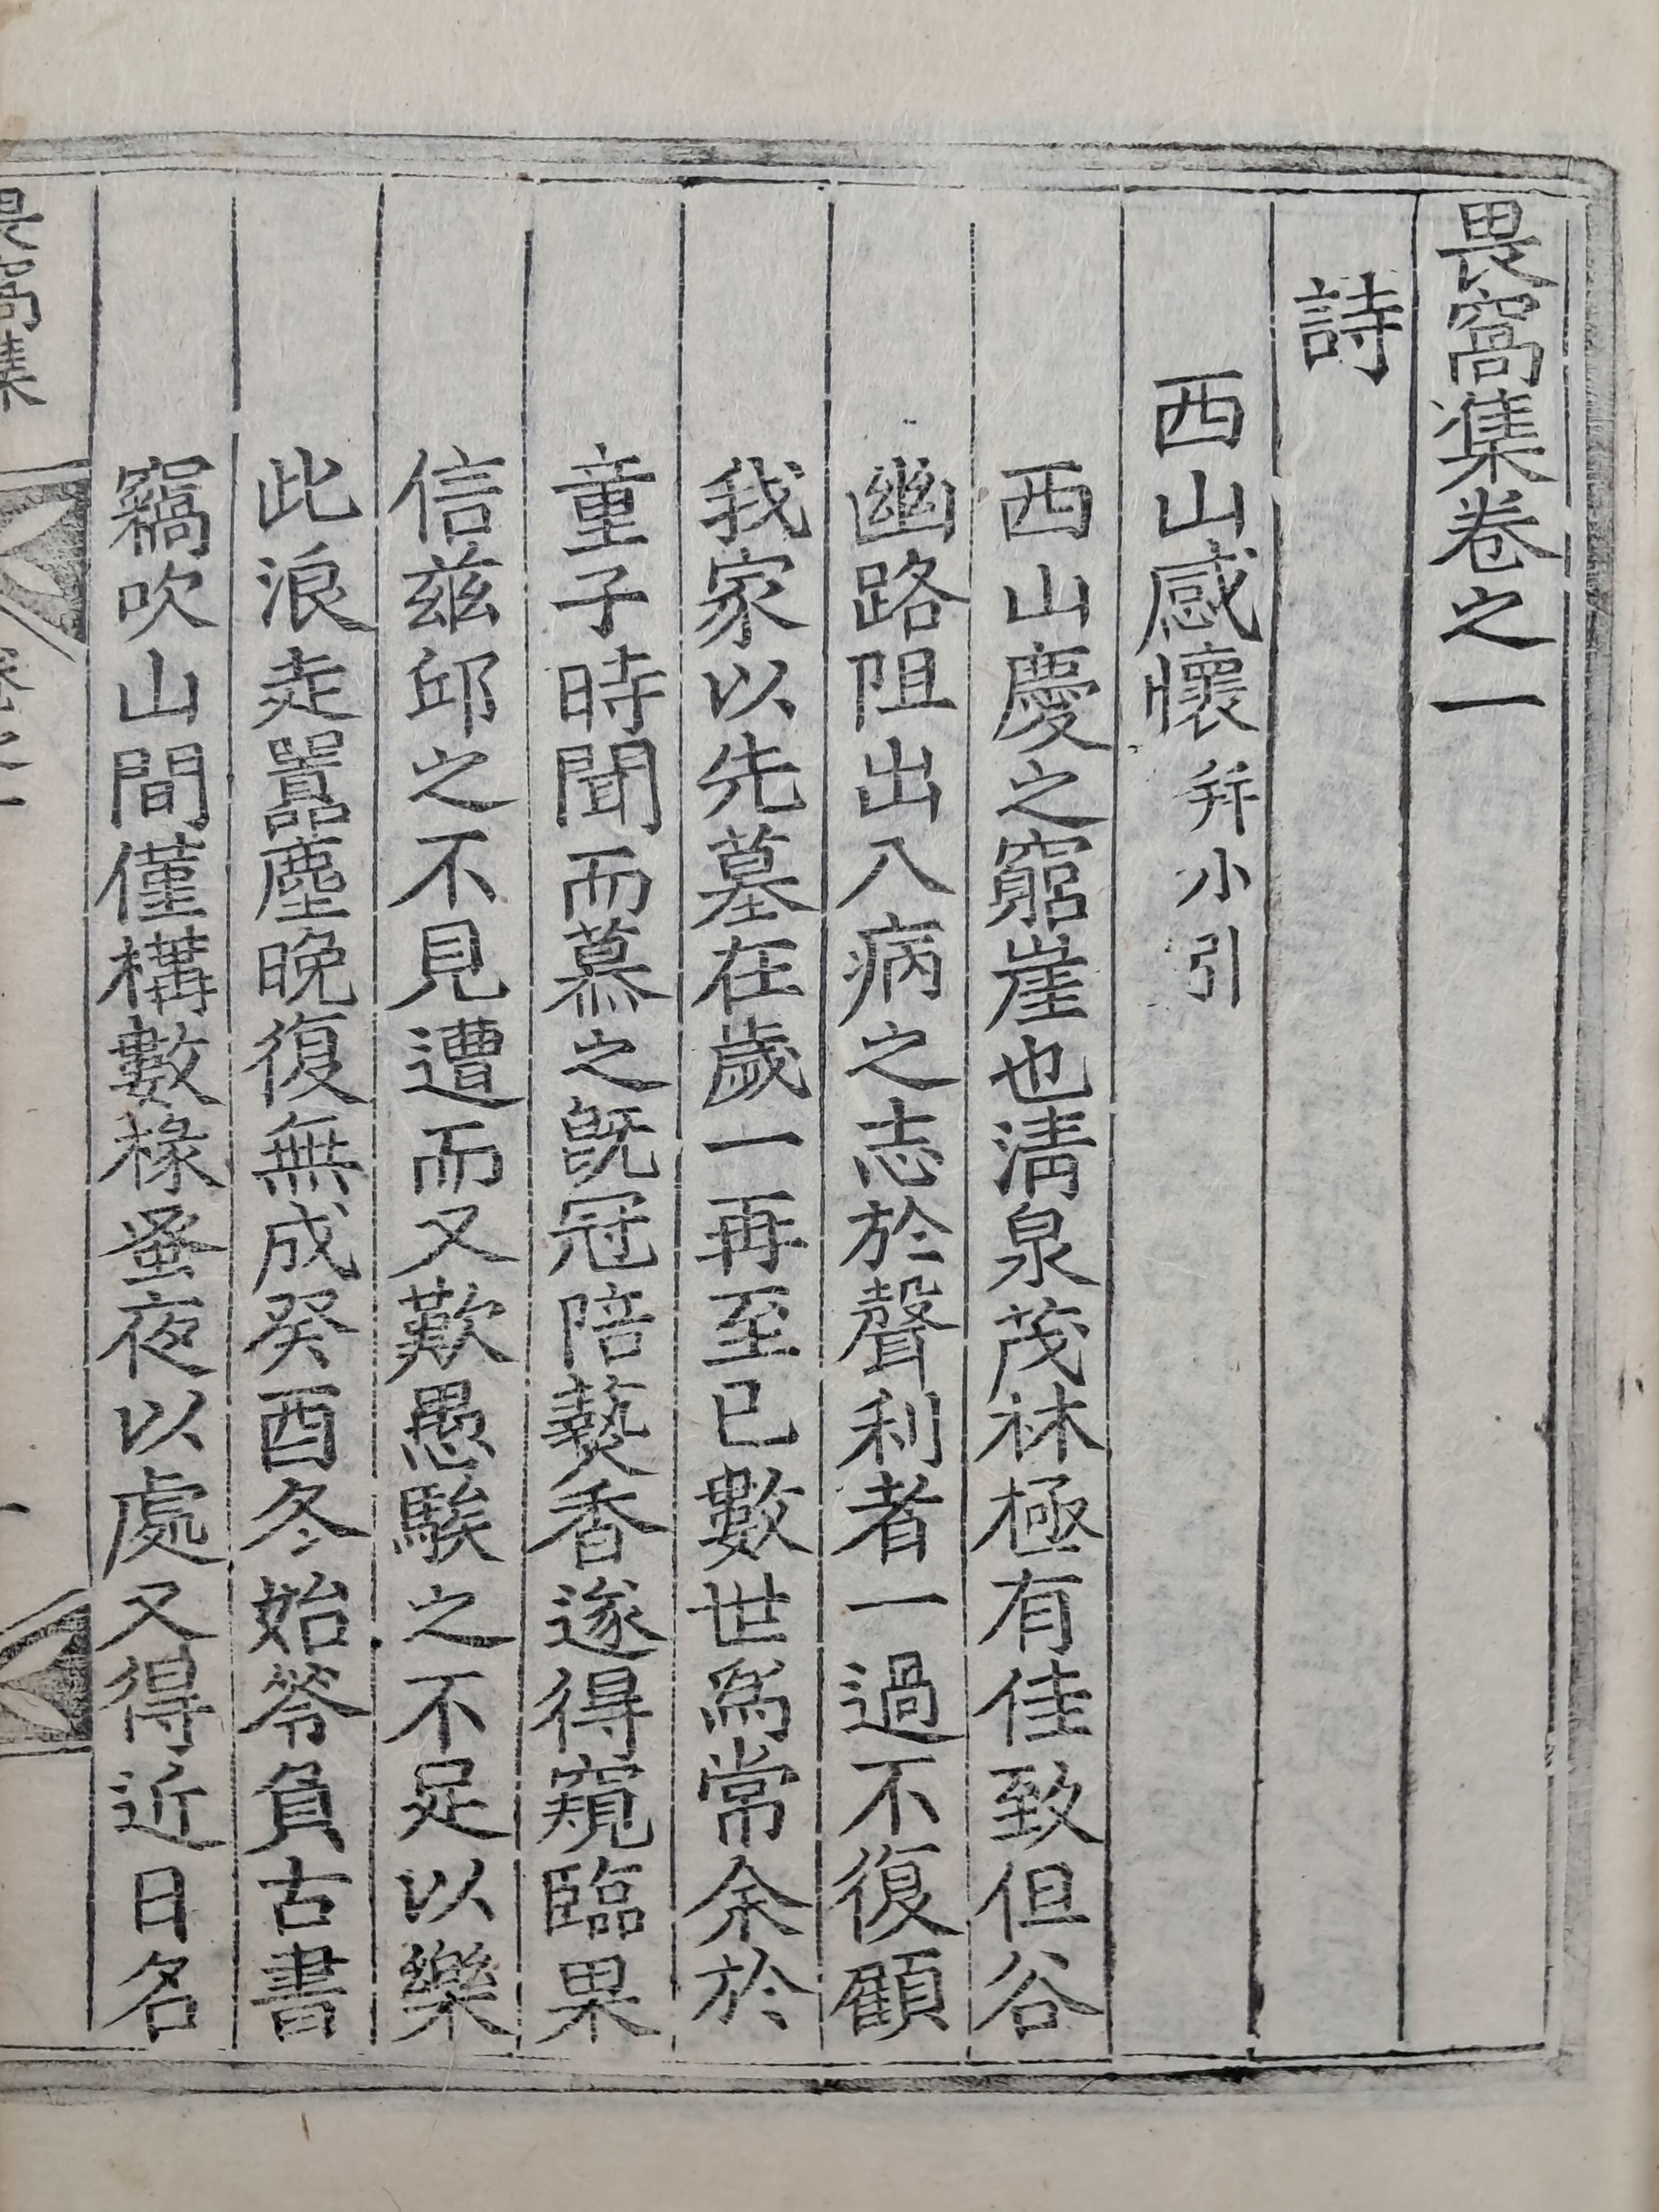 畏窩集卷之一
詩
西山感懷 并小引
西山慶之窮崖也淸泉茂林極有佳致但谷
幽路阻出入病之志於聲利者一過不復顧
我家以先墓在歲一再至已數世爲常余於
童子時聞而慕之旣冠陪爇香遂得窺臨果
信兹邱之不見遭而又歎愚騃之不足以樂
此浪走囂塵晩復無成癸酉冬始笭負古書
竊吹山間僅構數椽蚤夜以處又得近日名
畏窩集 卷之一